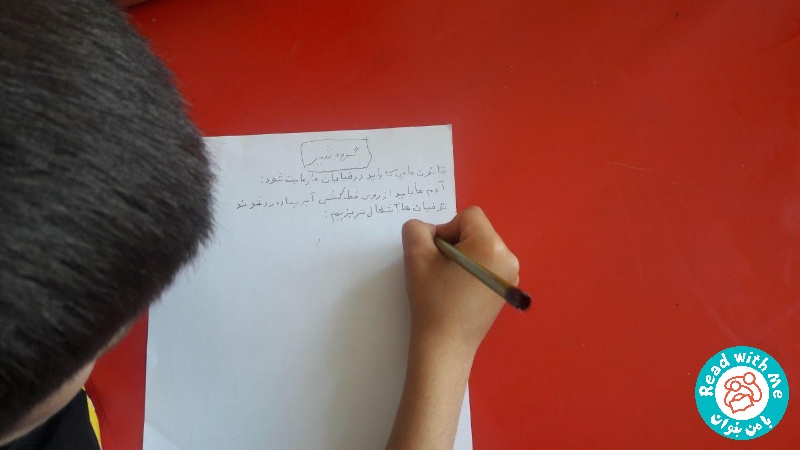 گروه شیر
قانون هایی که باید در خیابان ها رعایت شود:
آدم ها باید از روی خط کشی آبر پیاده رد
خیابان ها آشغال نریزیم:
Read with Me
با من بخوان